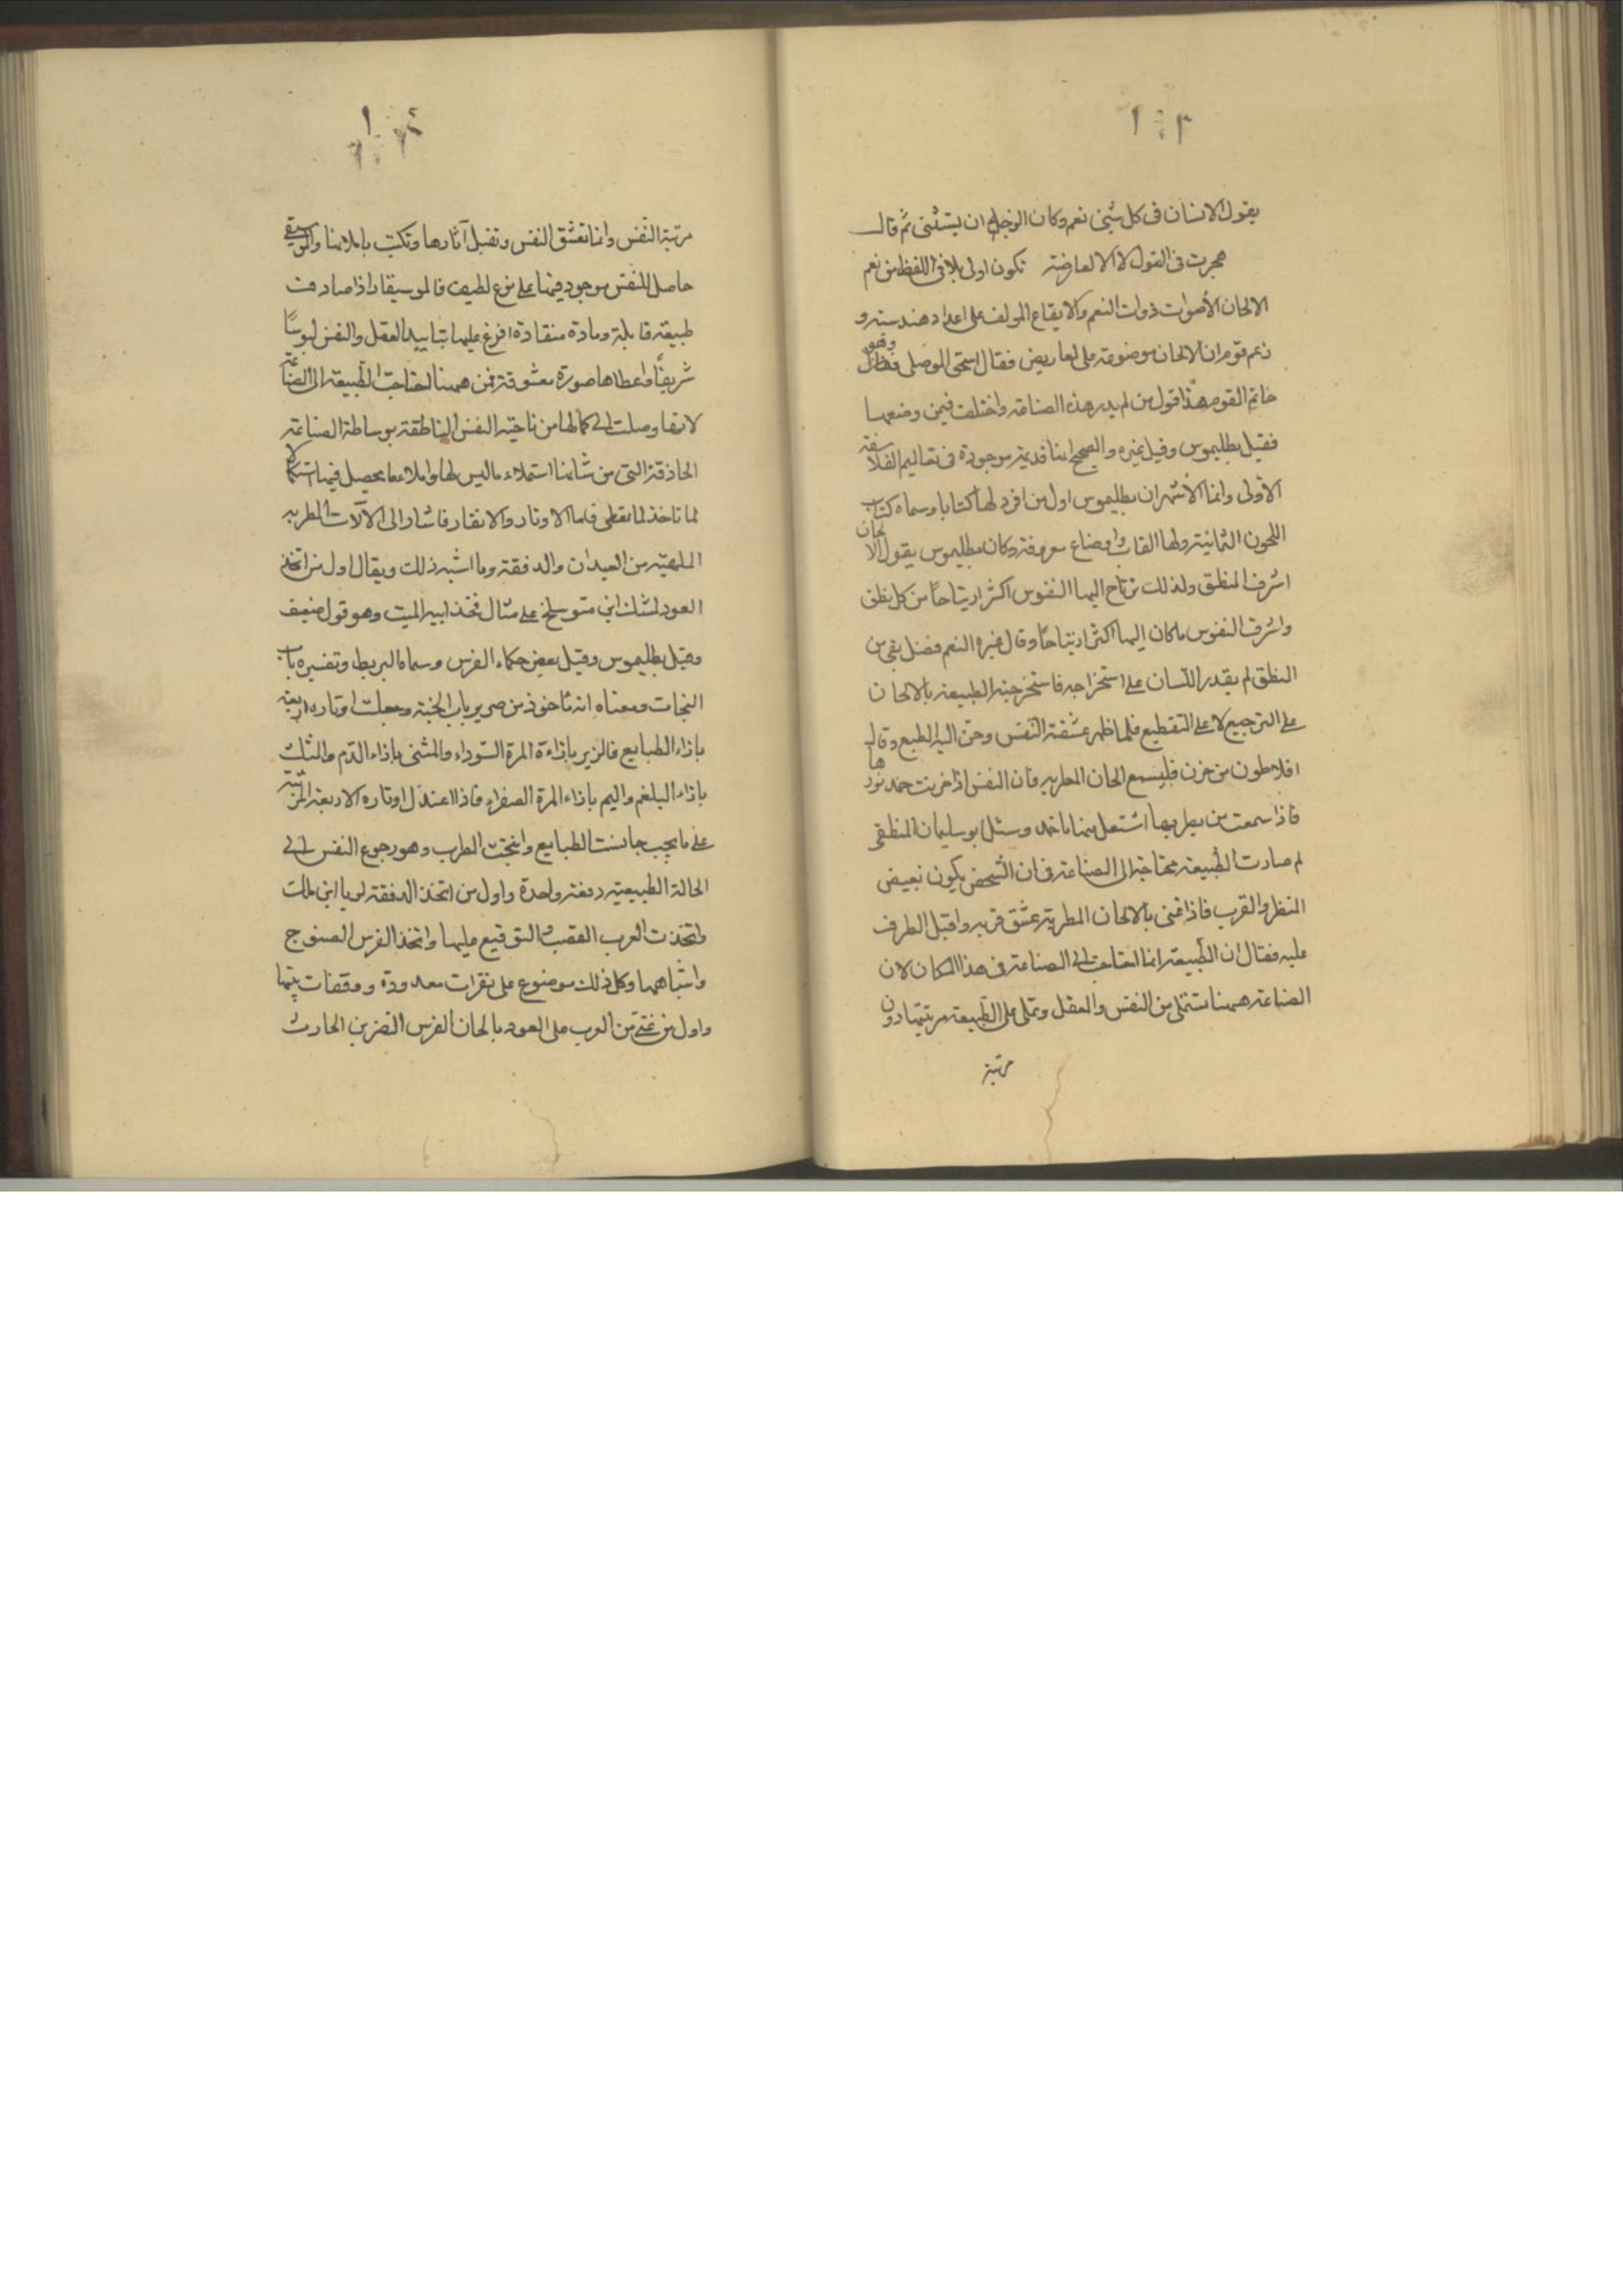 يقول الانسان فى كل شيئ نعم وكان الوجه ان يستثنى ثم قال
هجرت فى القول لا الا لعارضة تكون اولى بلا فى اللفظ من نعم
الالحان الأصوات ذوات النعم والايقاع المولف على اعداد هندسية و
زعم قوم ان الالحان موضوعة على اعاريض فقال اسحق الموصلى وهو
خاتم القوم هذا قول من لم يدر هذه الصناعة واختلف فيمن وضعها
فقيل بطليموس وقيل غيره والصحيح انها قديمة موجودة فى تعاليم الفلاسفة
الأولى وانما الأشهر ان بطليموس اول من افرد لها كتابا وسماه كتاب
اللحون الثمانية ولها القاب واوضاع معروفة وكان بطليموس يقول الالحان
اشرف المنطق ولذلك ترتاح اليها النفوس اكثر ارتياحاً من كل نطق
واشرف النفوس ماكان اليها اكثر ارتياحًا وقال غيره النعم فضل بقى من
النطق لم يقدر اللسان على استخراجه فاستخرجته الطبيعة بالالحان
على الترجيع لا على التقطيع فلما ظهر عشقته النفس وحن اليه الطبع وقال
افلاطون من حزن فليسمع الحان المطربه فان النفس اذا حزنت خمد نورها
فاذا سمعت من يطربها اشتعل منها ما خمد وسئل ابو سليمان المنطقى
لم صارت الطبيعة محتاجة الى الصناعة فان الشخص يكون بغيض
المنظر والقرب فاذا غنى بالالحان المطربة عشق قربه واقبل الطرف
عليه فقال ان الطبيعة انما احتاجت الى الصناعة فى هذا المكان لان
الصناعة ههنا تستملى من النفس والعقل وتملى على الطبيعة مرتبتها دون
مرتبة
١٠٤
مرتبة النفس وانما تعشق النفس وتقبل آثارها وتكتب باملائها والموسيقى
حاصل للنفس موجود فيها على نوع لطيف فالموسيقار اذا صادفت
طبيعة قابلة ومادة منقادة افرغ عليها بتاييد العقل والنفس لبوسًا
شريفًا واعطاها صورة معشوقة فمن ههنا احتاجت الطبيعة الى الصناعة
لانها وصلت الى كمالها من ناحية النفس الناطقة بوساطة الصناعة
الحاذقة التى من شانها استملاء ماليس لها واملاء ما يحصل فيها استكمالا
لما تاخذ لما تعطى فاما الاوتار والانقار فاشار الى الآلات المطربه
الملهية من العيدان والدففة وما اشبه ذلك ويقال اول من اتخذ
العود لمشك ابن متوسلخ على مثال فخذ ابيه الميت وهو قول ضعيف
وقيل بطليموس وقيل بعض حكماء الفرس وسماه البربط وتفسيره باب
النجات ومعناه انه ماخوذ من صرير باب الجنة وجعلت اوتاره اربعة
بازاء الطبايع فالزير بازاءة المرة السوداء والمثنى بازاء الدم والمثلث
بازاء البلغم واليم بازاء المرة الصفراء فاذا اعتدل اوتاره الاربعة المرتبة
على ما يجب جانست الطبايع وانتجت الطرب وهو رجوع النفس الى
الحالة الطبيعية دفعة واحدة واول من اتخذ الدففة لوبا ابن لمك
واتخذت العرب القضب التى توقع عليها واتخذ الفرس الصنوج
واشباهها وكل ذلك موضوع على نقرات معدودة ووقفات بينها
واول من غنى من العرب على العود بالحان الفرس النضر بن الحارث